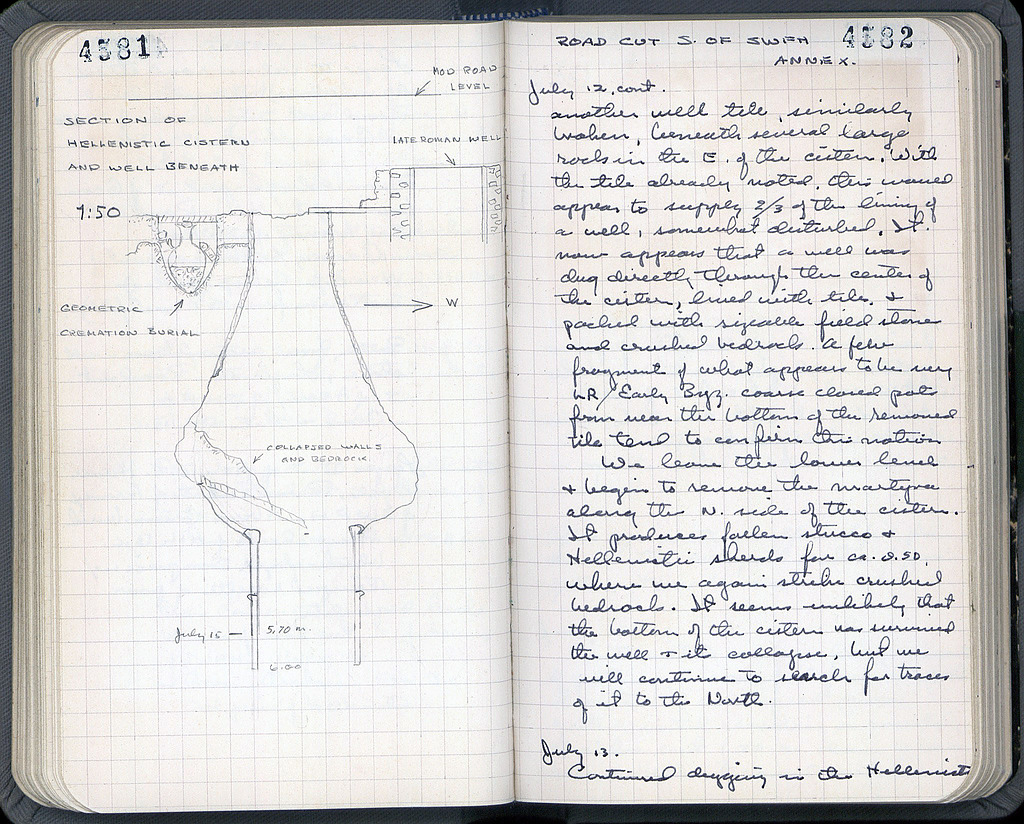 4581
MOD ROAD
LEVEL
SECTION OF
HELLENISTIC CISTERN
AND WELL BENEATH
LATE ROMAN WELL
1:50
W
GEOMETRIC
CREMATION BURIAL
COLLAPSED WALLS
AND BEDROCK.
July 15 — 5.70 m.
6.00
4582
ROAD CUT S. OF SWFH
ANNEX.
July 12, cont.
another well tile, similarly
broken, beneath several large
rocks in the E. of the cistern. With
the tile already noted, this would
appear to supply 2/3 of the lining of
a well, somewhat disturbed. It
now appears that a well was
dug directly through the center of
the cistern, lined with tile, &
packed with sizeable field stone
and crushed bedrock. A few
fragments of what appears to be very
LR/Early Byz. coarse closed pots
from near the bottom of the removed
tile tend to confirm this notion.
We leave the lower level
& begin to remove the
along the N. side of the cistern.
It produces fallen stucco &
Hellenistic sherds for ca. 0.50,
where we again strike crushed
bedrock. It seems unlikely that
the bottom of the cistern has survived
the well & its collapse, but we
will continue to search for traces
of it to the North.
July 13.
Continued digging in the Hellenistic